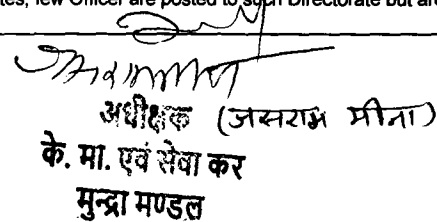 tes, few Officer are posted to such Directorate but are
अधीक्षक (जसराम मीना)
के. मा. एवं सेवा कर
मुन्द्रा मण्डल